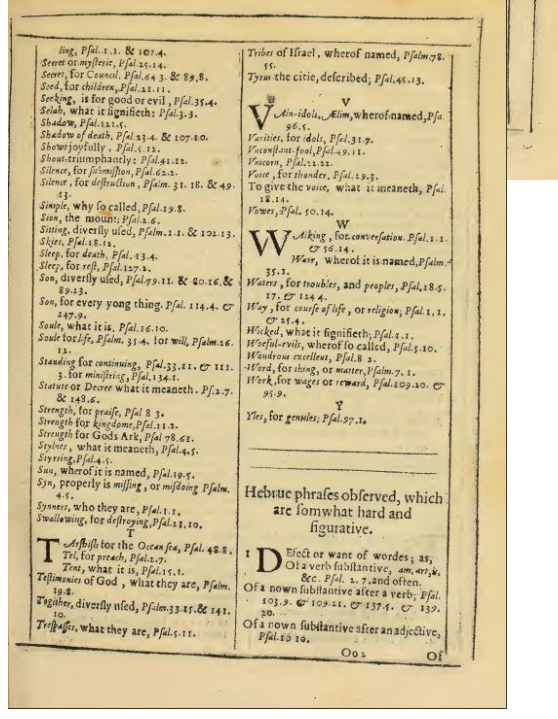 ling, Psal.1.1. & 107.4.
Secret or mysterie, Psal.25.14.
Secret, for Council. Psal.64 3. & 89,8.
Seed, for children, Psal.21.11.
Seeking, is for good or evil, Psal.35.4.
Selah, what it signifieth: Psal.3.3.
Shadow, Psal.121.5.
Shadow of death, Psal.23.4. & 107.10.
Showt joyfully, Psal.5.12.
Shout-triumphantly: Psal.41.12.
Silence, for submission, Psal.62.2.
Silence, for destruction, Psalm. 31. 18. & 49.
13.
Simple, why so called, Psal.19.8.
Sion, the mount; Psal.2.6.
Sitting, diversly used, Psalm.1.1. & 102.13.
Skies, Psal.18.12.
Sleep, for death, Psal.13.4.
Sleep, for rest, Psal.127.2.
Son, diversly used, Psal.79.11. & 80.16. &
89.23.
Son, for every yong thing. Psal. 114.4. &
147.9.
Soule, what it is, Psal.16.10.
Soule for life, Psalm. 35.4. for will, Psalm.26.
12.
Standing for continuing, Psal.33.11. & 111.
3. for ministring, Psal.134.1.
Statute or Decree what it meaneth. Ps.2.7.
& 148.6.
Strength, for praise, Psal 8 3.
Strength for kingdome, Psal.21.2.
Strength for Gods Ark, Psal 78.61.
Stylnes, what it meaneth, Psal.4.5.
Styrring, Psal.4.5.
Sun, wherof it is named, Psal.19.5.
Syn, properly is missing, or misdoing Psalm.
4.5.
Synners, who they are, Psal.1.1.
Swallowing, for destroying, Psal.21.10.
T
TArshish for the Ocean sea, Psal. 48.8.
Tel, for preach, Psal.2.7.
Tent, what it is, Psal.15.1.
Testimonies of God, what they are, Psalm.
19.8.
Togither, diversly used, Psalm.33.15. & 141.
10.
Trespasses, what they are, Psal.5.11.
Tribes of Israel, wherof named, Psalm.78.
55.
Tyrus the citie, described; Psal.45.13.
V
VAin-idols, Ælim, wherof named, Psa.
96.5.
Vanities, for idols, Psal.31.7.
Vnconstant-fool, Psal.49.11.
Vnicorn, Psal.22.22.
Voice, for thonder, Psal.29.3.
To give the voice, what it meaneth, Psal.
18.14.
Vowes, Psal. 50.14.
W
WAlking, for conversation. Psal.1.1.
& 56.14.
Warr, wherof it is named, Psalm.
35.1.
Waters, for troubles, and peoples, Psal,18.5.
17. & 124 4.
Way, for course of life, or religion; Psal.1.1.
& 25.4.
Wicked, what it signifieth; Psal.1.1.
Woeful-evils, wherof so called, Psal.5.10.
Wondrous excellent, Psal.8 2.
Word, for thing, or matter, Psalm.7.1.
Work, for wages or reward, Psal.109.20. &
95.9.
Y
Yles, for gentiles; Psal.97.1.
Hebrue phrases observed, which
are somwhat hard and
figurative.
1 DEfect or want of wordes; as,
Of a verb substantive, am, art, is,
&c. Psal. 2.7. and often.
Of a nown substantive after a verb; Psal.
103.9. & 109.21. & 137.5. & 139.
20.
Of a nown substantive after an adjective,
Psal.10 10.
Oo2
Of